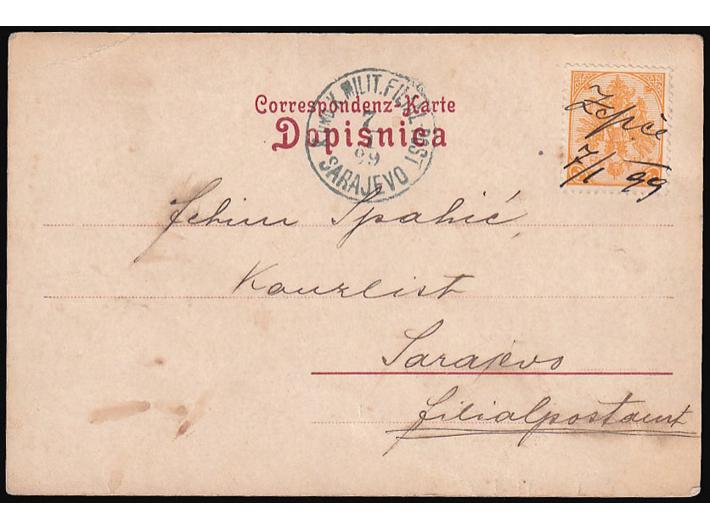 Correspondenz-Karte
Dopisnica
MILIT. FILIAL-POST
7
99
SARAJEVO
Žepče
7/1 99
Fehim Spahić,
Kanzlist
Sarajevo
filialpostamt